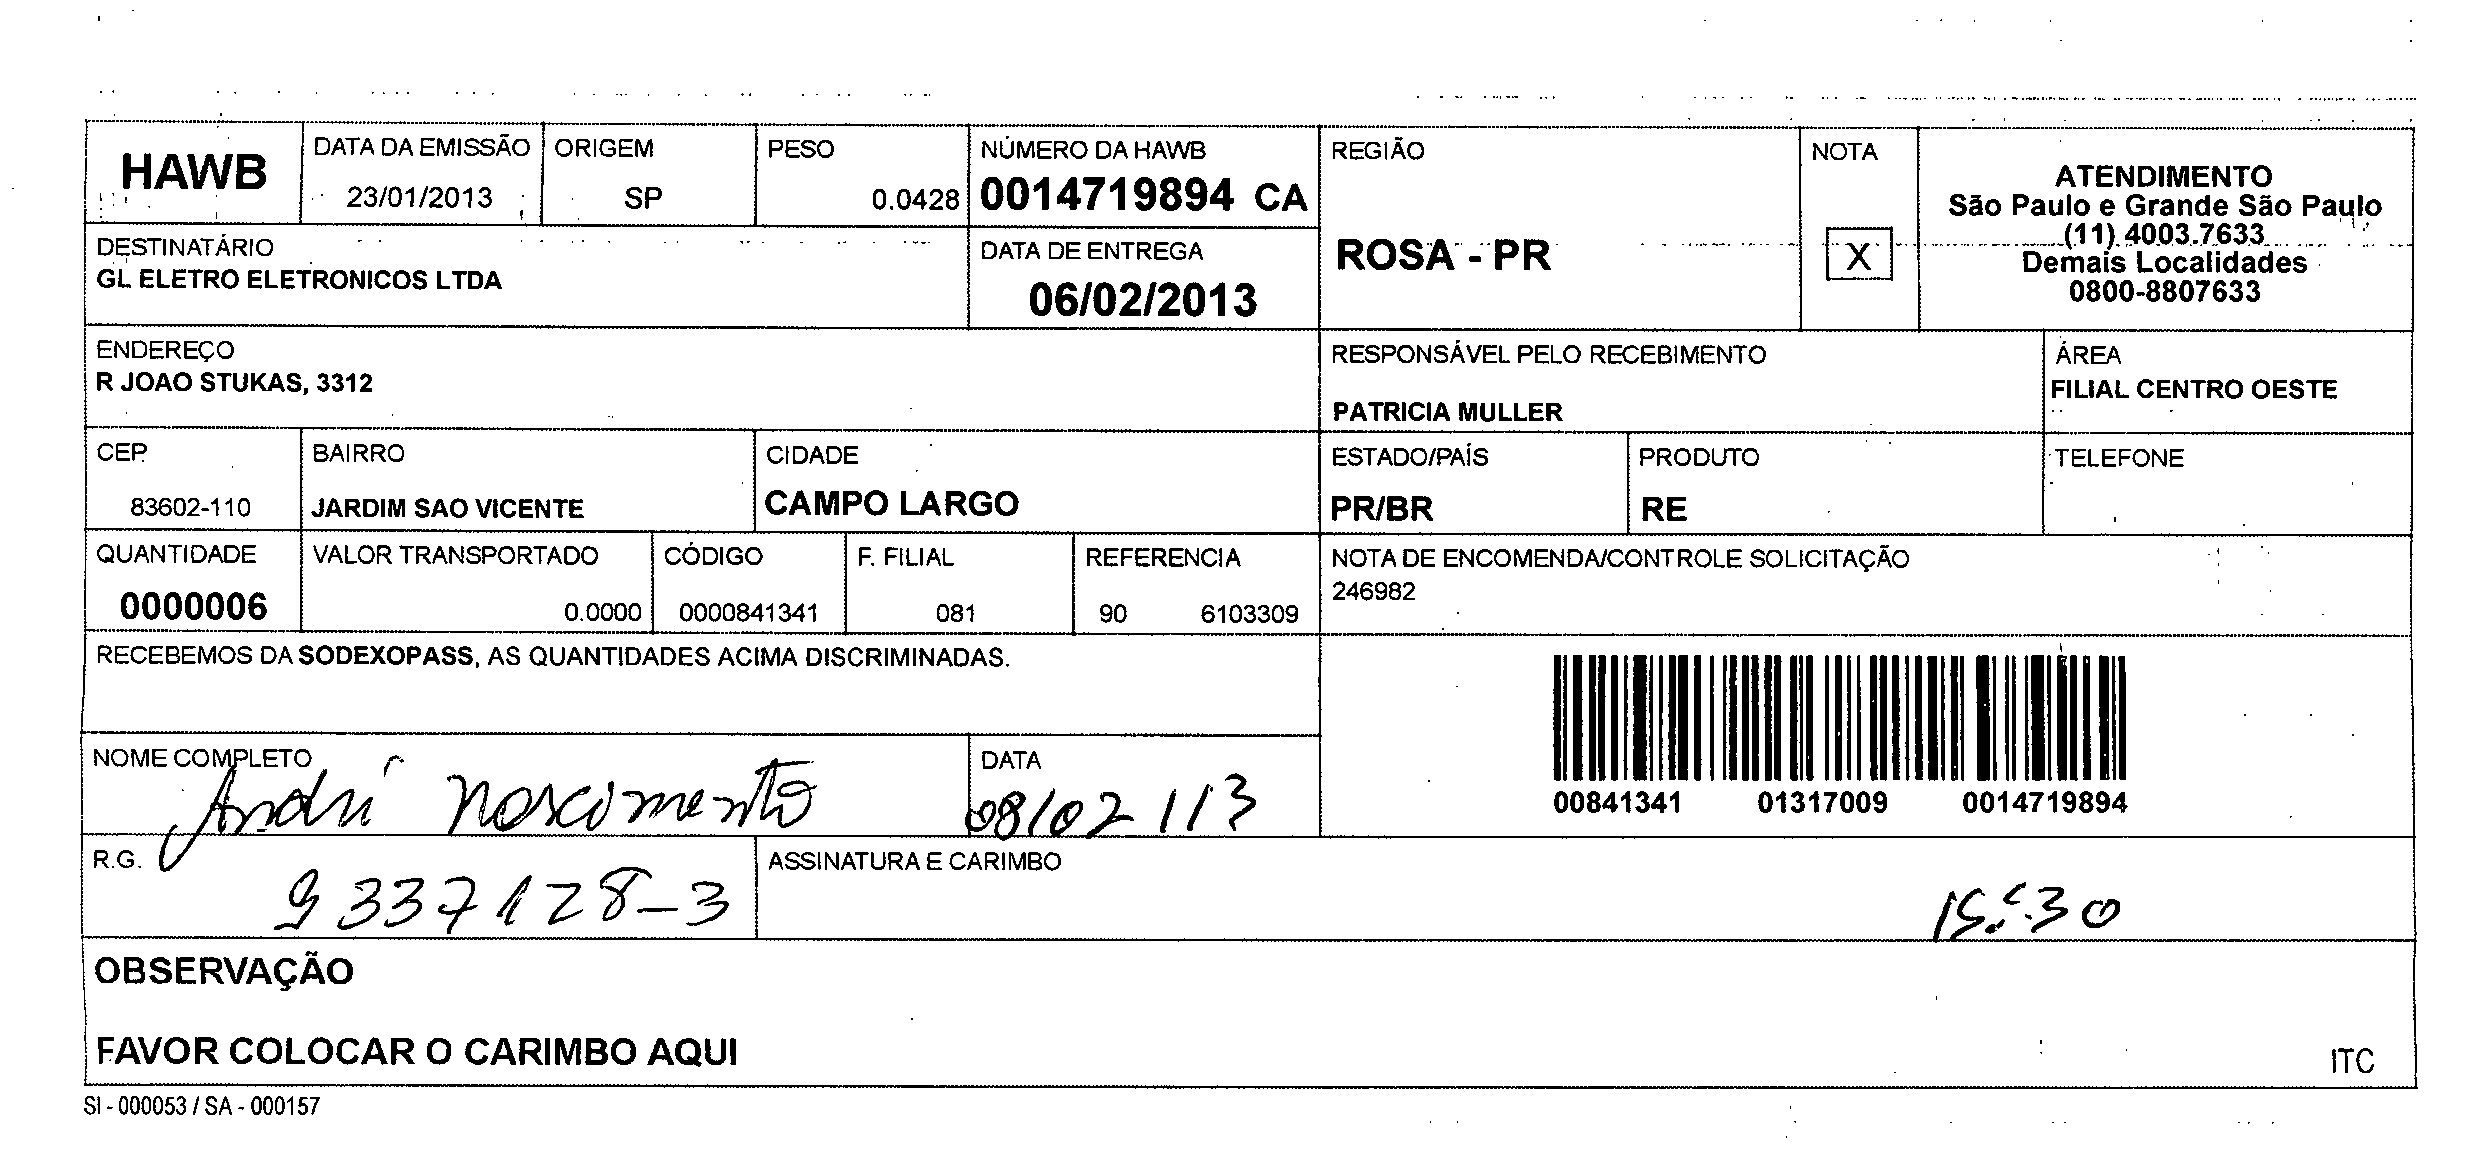 HAWB
DATA DA EMISSÃO
23/01/2013
ORIGEM
SP
PESO
0.0428
NÚMERO DA HAWB
0014719894 CA
REGIÃO
ROSA - PR
NOTA
X
ATENDIMENTO
São Paulo e Grande São Paulo
(11) 4003.7633
Demais Localidades
0800-8807633
DESTINATÁRIO
GL ELETRO ELETRONICOS LTDA
DATA DE ENTREGA
06/02/2013
ENDEREÇO
R JOAO STUKAS, 3312
RESPONSÁVEL PELO RECEBIMENTO
PATRICIA MULLER
ÁREA
FILIAL CENTRO OESTE
CEP
83602-110
BAIRRO
JARDIM SAO VICENTE
CIDADE
CAMPO LARGO
ESTADO/PAÍS
PR/BR
PRODUTO
RE
TELEFONE
QUANTIDADE
0000006
VALOR TRANSPORTADO
0.0000
CÓDIGO
0000841341
F. FILIAL
081
REFERENCIA
90 6103309
NOTA DE ENCOMENDA/CONTROLE SOLICITAÇÃO
246982
RECEBEMOS DA SODEXOPASS, AS QUANTIDADES ACIMA DISCRIMINADAS.
00841341 01317009 0014719894
NOME COMPLETO
André Nascimento
DATA
08/02/13
R.G.
9337128-3
ASSINATURA E CARIMBO
15:30
OBSERVAÇÃO
FAVOR COLOCAR O CARIMBO AQUI
ITC
SI - 000053 / SA - 000157